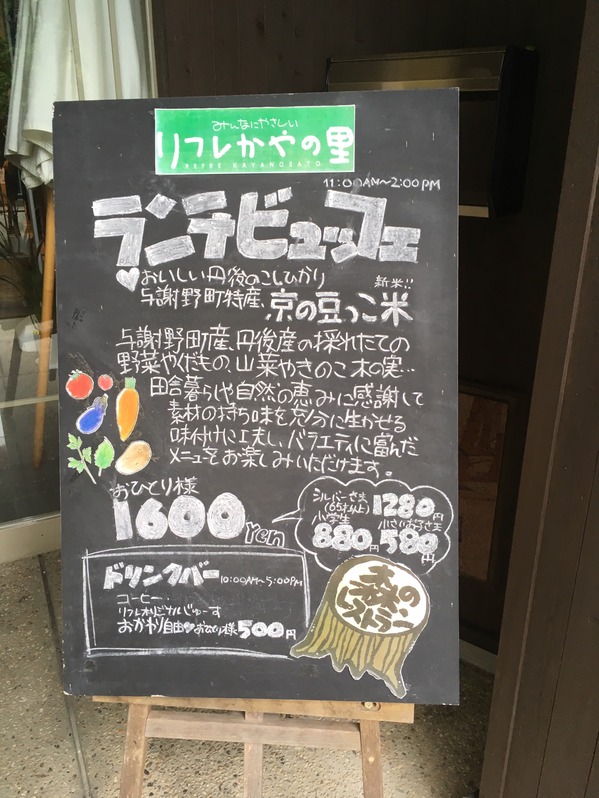 みんなにやさしい
リフレかやの里
REFRE KAYANOSATO
11:00AM～2:00PM
ランチビュッフェ
おいしい丹後のこしひかり
新米!!
与謝野町特産、京の豆っこ米
与謝野町産、丹後産の採れたての
野菜やくだもの、山菜やきのこ木の実…
田舎暮らしや自然の恵みに感謝して
素材の持ち味を充分に生かせる
味付けに工夫し、バラエティに富んだ
メニューをお楽しみいただけます。
おひとり様
1600yen
シルバーさま
(65才以上) 1280円
小学生 880円
小さいお子さま 580円
ドリンクバー 10:00AM～5:00PM
コーヒー・
リフレオリジナルじゅーす
おかわり自由♥おひとり様 500円
森の
レストラン